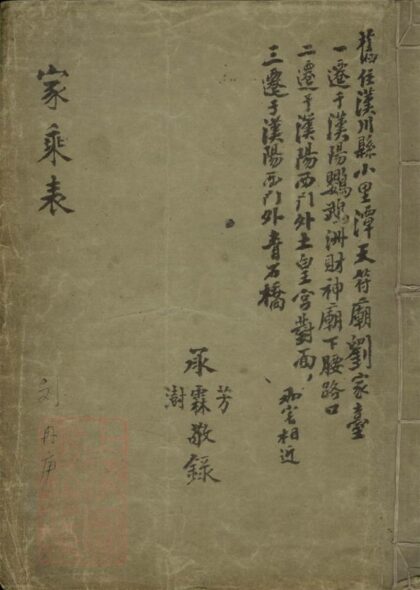 舊住漢川縣小里潭天符廟劉家臺
一遷于漢陽鸚鵡洲財神廟下腰路口
二遷于漢陽西門外土皇宮對面,
相近
三遷于漢陽西門外青石橋
芳
承霖敬錄
澍
家乘表
刘